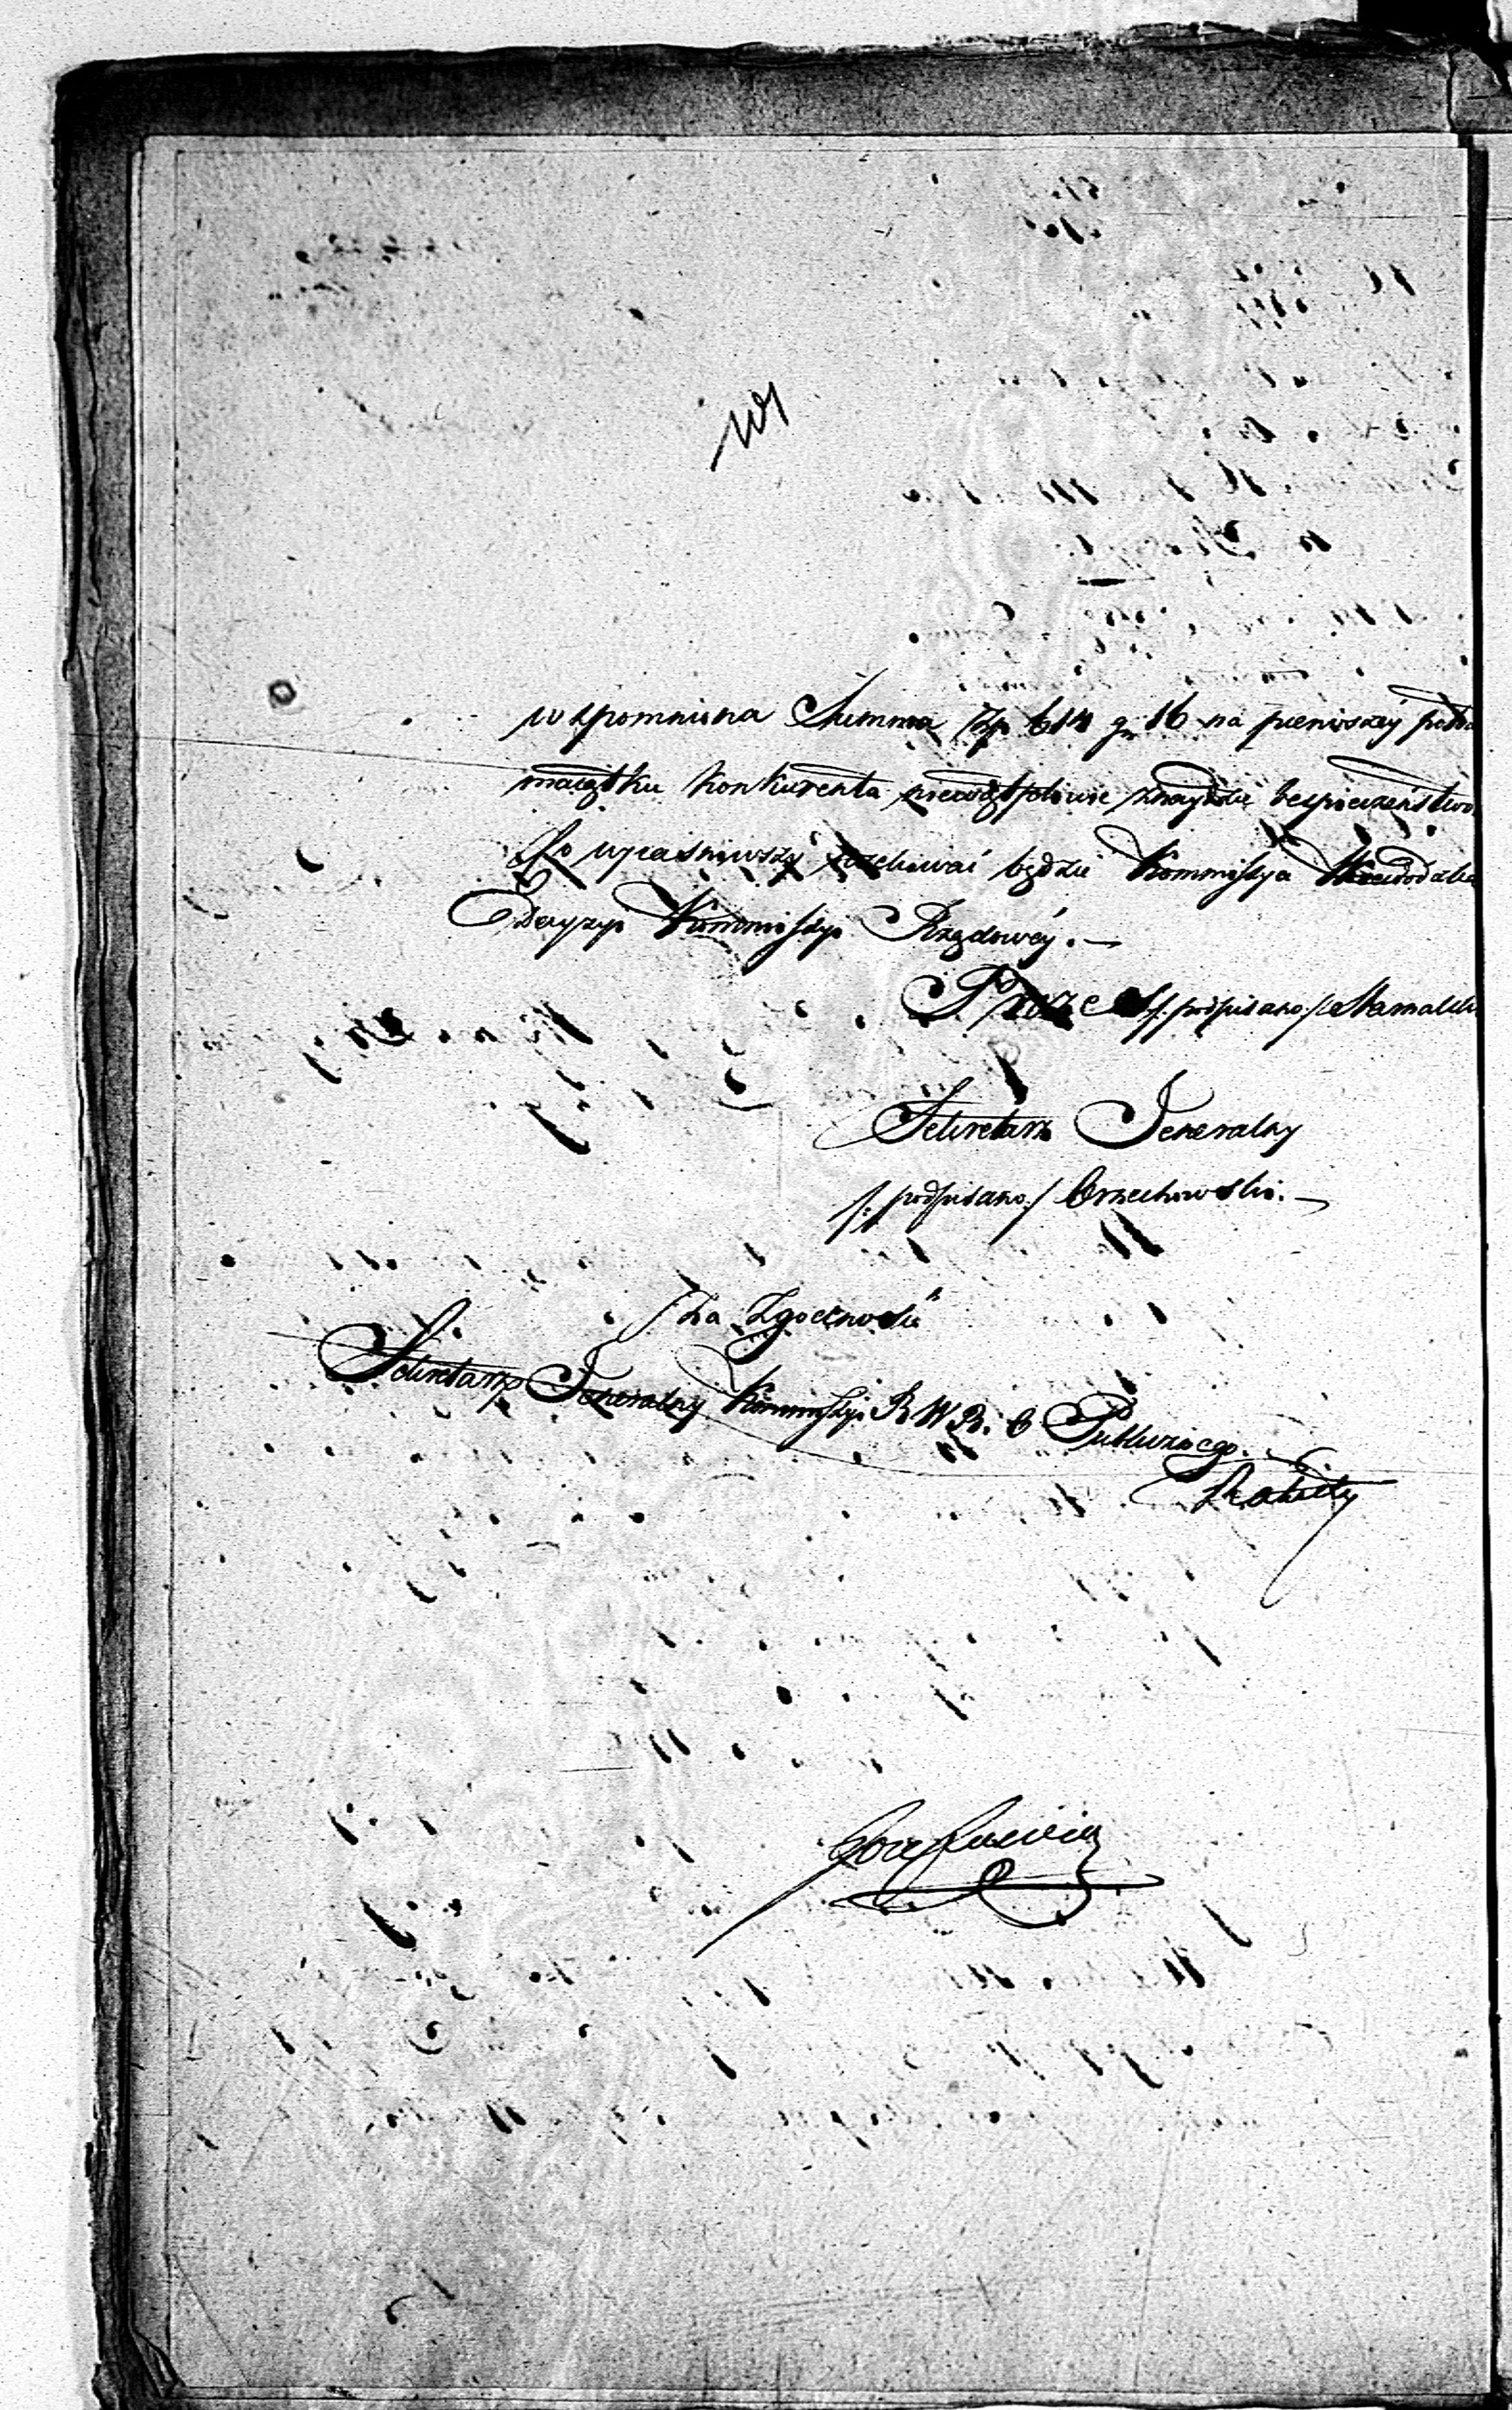 wspomniona Summa Zp 614 g 16 na pierwszéy
maiątku Konkurenta niewątpliwie znaydzie bespieczeństwo,
Co wyiaśniwszy oczekiwać będzie Kommissya
Decyzyi Kommissyi Rządowéy. —
Prezes /: podpisano :/
Sekretarz Jeneralny
/: podpisano :/ Orzechowski. —
Za Zgodność
Sekretarz Jeneralny Kommissyi R W R. i O Publicznego.